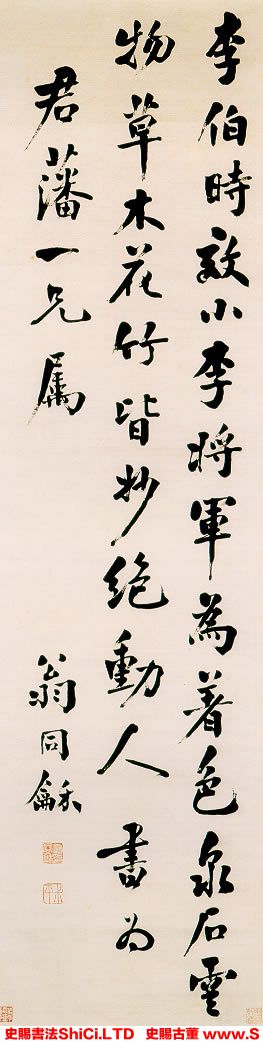 李伯時效小李將軍為著色泉石雲
物草木花竹皆妙絶動人 書為
君藩一兄属
翁同龢
史賜書法ShiCi.LTD 史賜古董 www.S